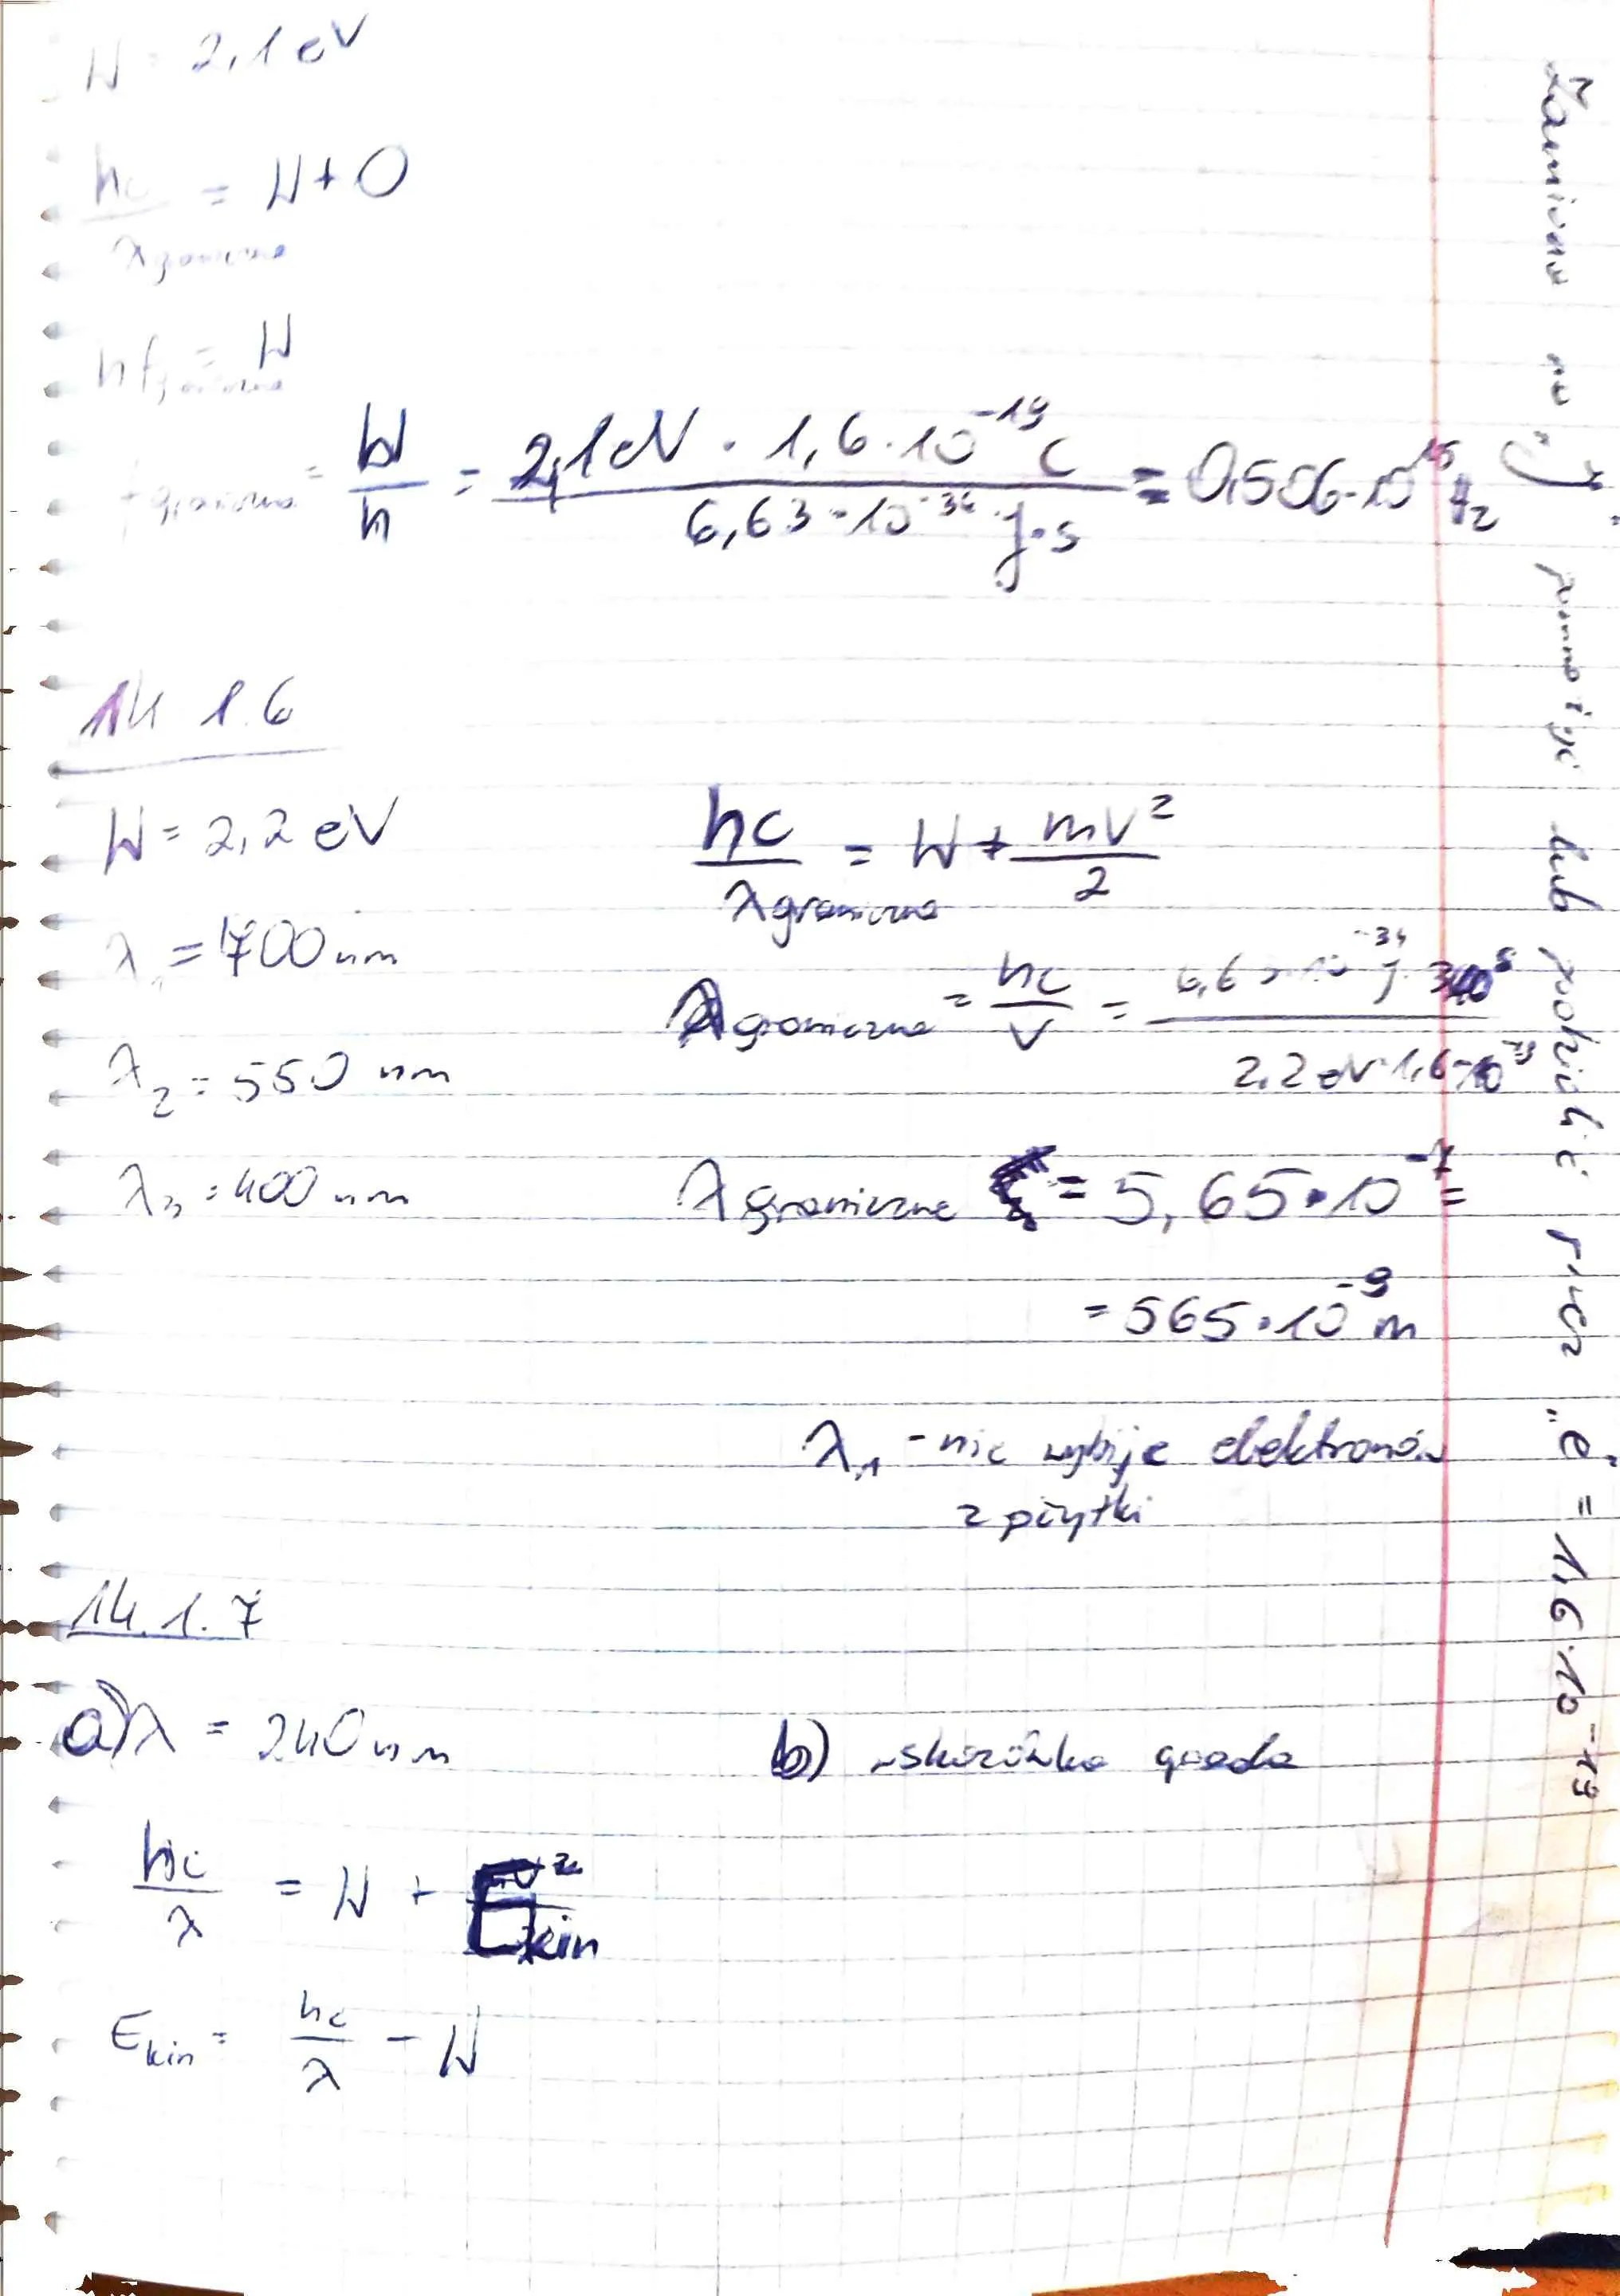 W = 2,1 eV
hc / λgraniczna = W + 0
hfgraniczna = W
fgraniczna = W / h = 2,1 eV · 1,6 · 10^-19 C / 6,63 · 10^-34 J·s = 0,506 · 10^15 Hz
14 1.6
W = 2,2 eV
λ1 = 700 nm
λ2 = 550 nm
λ3 = 400 nm
hc / λgraniczna = W + mv² / 2
λgraniczna = hc / W = 6,63 · 10^-34 J · 3·10^8 / 2,2 eV · 1,6 · 10^-19
λgraniczna = 5,65 · 10^-7 =
= 565 · 10^-9 m
λ1 - nie wybije elektronów
z płytki
14.1.7
a) λ = 240 nm
hc / λ = W + Ekin
Ekin = hc / λ - W
b) wskazówka
Zamiana na "J"
pomnożyć lub podzielić przez "e" = 1,6·10^-19